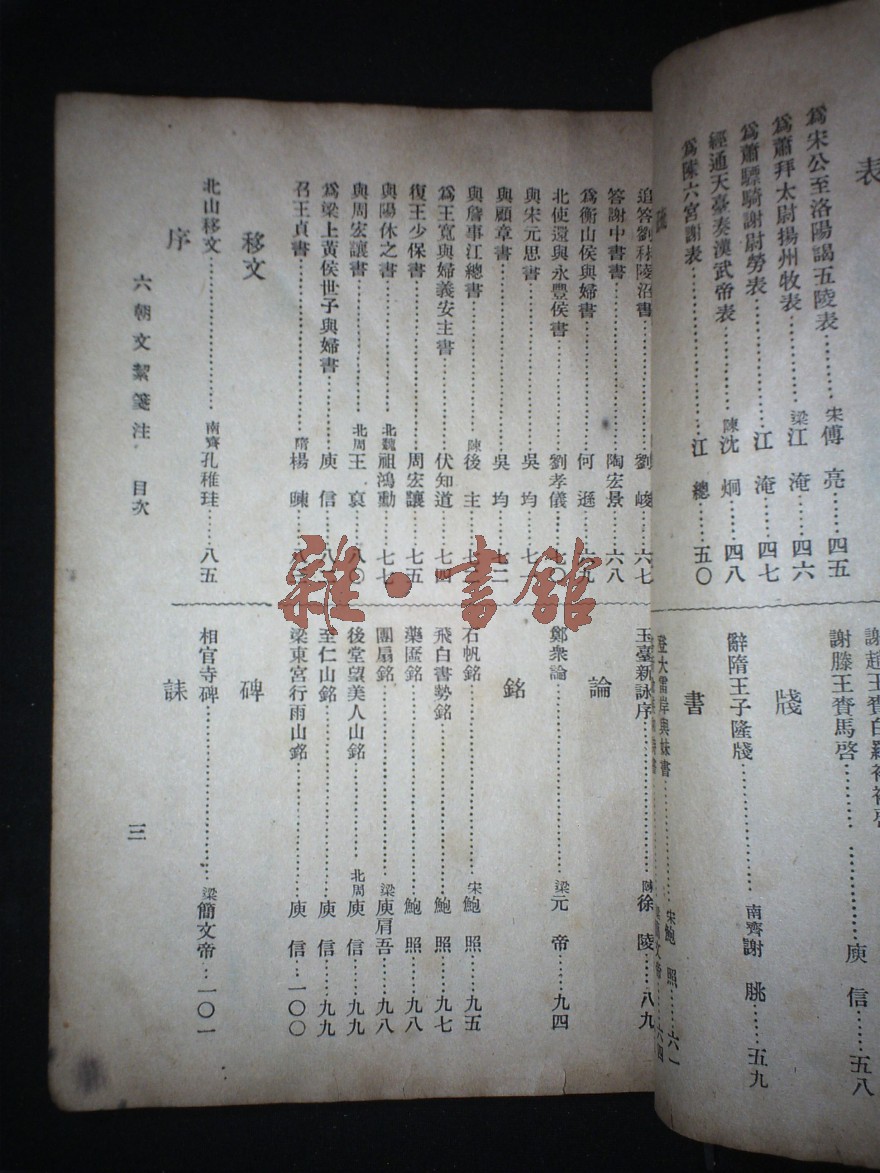 表
為宋公至洛陽謁五陵表……宋傅亮……四五
為蕭拜太尉揚州牧表……梁江淹……四六
為蕭驃騎謝尉勞表……江淹……四七
經通天臺奏漢武帝表……陳沈炯……四八
為陳六宮謝表……江總……五〇
謝滕王賚馬啓……庾信……五八
牋
辭隋王子隆牋……南齊謝朓……五九
書
登大雷岸與妹書……宋鮑照……六一
追答劉秣陵沼書……劉峻……六七
答謝中書書……陶宏景……六八
為衡山侯與婦書……何遜……六九
北使還與永豐侯書……劉孝儀……七〇
與宋元思書……吳均……七一
與顧章書……吳均……七二
與詹事江總書……陳後主……七三
為王寬與婦義安主書……伏知道……七四
復王少保書……周宏讓……七五
與陽休之書……北魏祖鴻勳……七七
與周宏讓書……北周王褎……八〇
為梁上黃侯世子與婦書……庾信……八二
召王貞書……隋楊暕……八三
移文
北山移文……南齊孔稚珪……八五
序
玉臺新詠序……陳徐陵……八九
論
鄭衆論……梁元帝……九四
銘
石帆銘……宋鮑照……九五
飛白書勢銘……鮑照……九七
藥匳銘……鮑照……九八
團扇銘……梁庾肩吾……九八
後堂望美人山銘……北周庾信……九九
至仁山銘……庾信……九九
梁東宮行雨山銘……庾信……一〇〇
碑
相官寺碑……梁簡文帝…一〇一
誄
六朝文絜箋注 目次
三
雜·書館